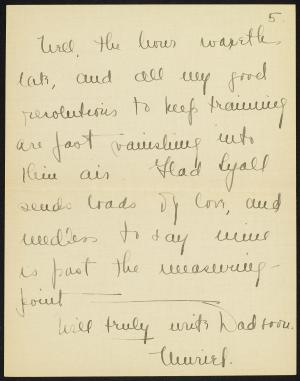 5.
Well, the hour waxeth
late, and all my good
resolutions to keep training
are fast vanishing into
thin air. Glad Lyall
sends loads of love, and
needless to say mine
is past the measuring-
point
Will truly write Dad soon.
Muriel.